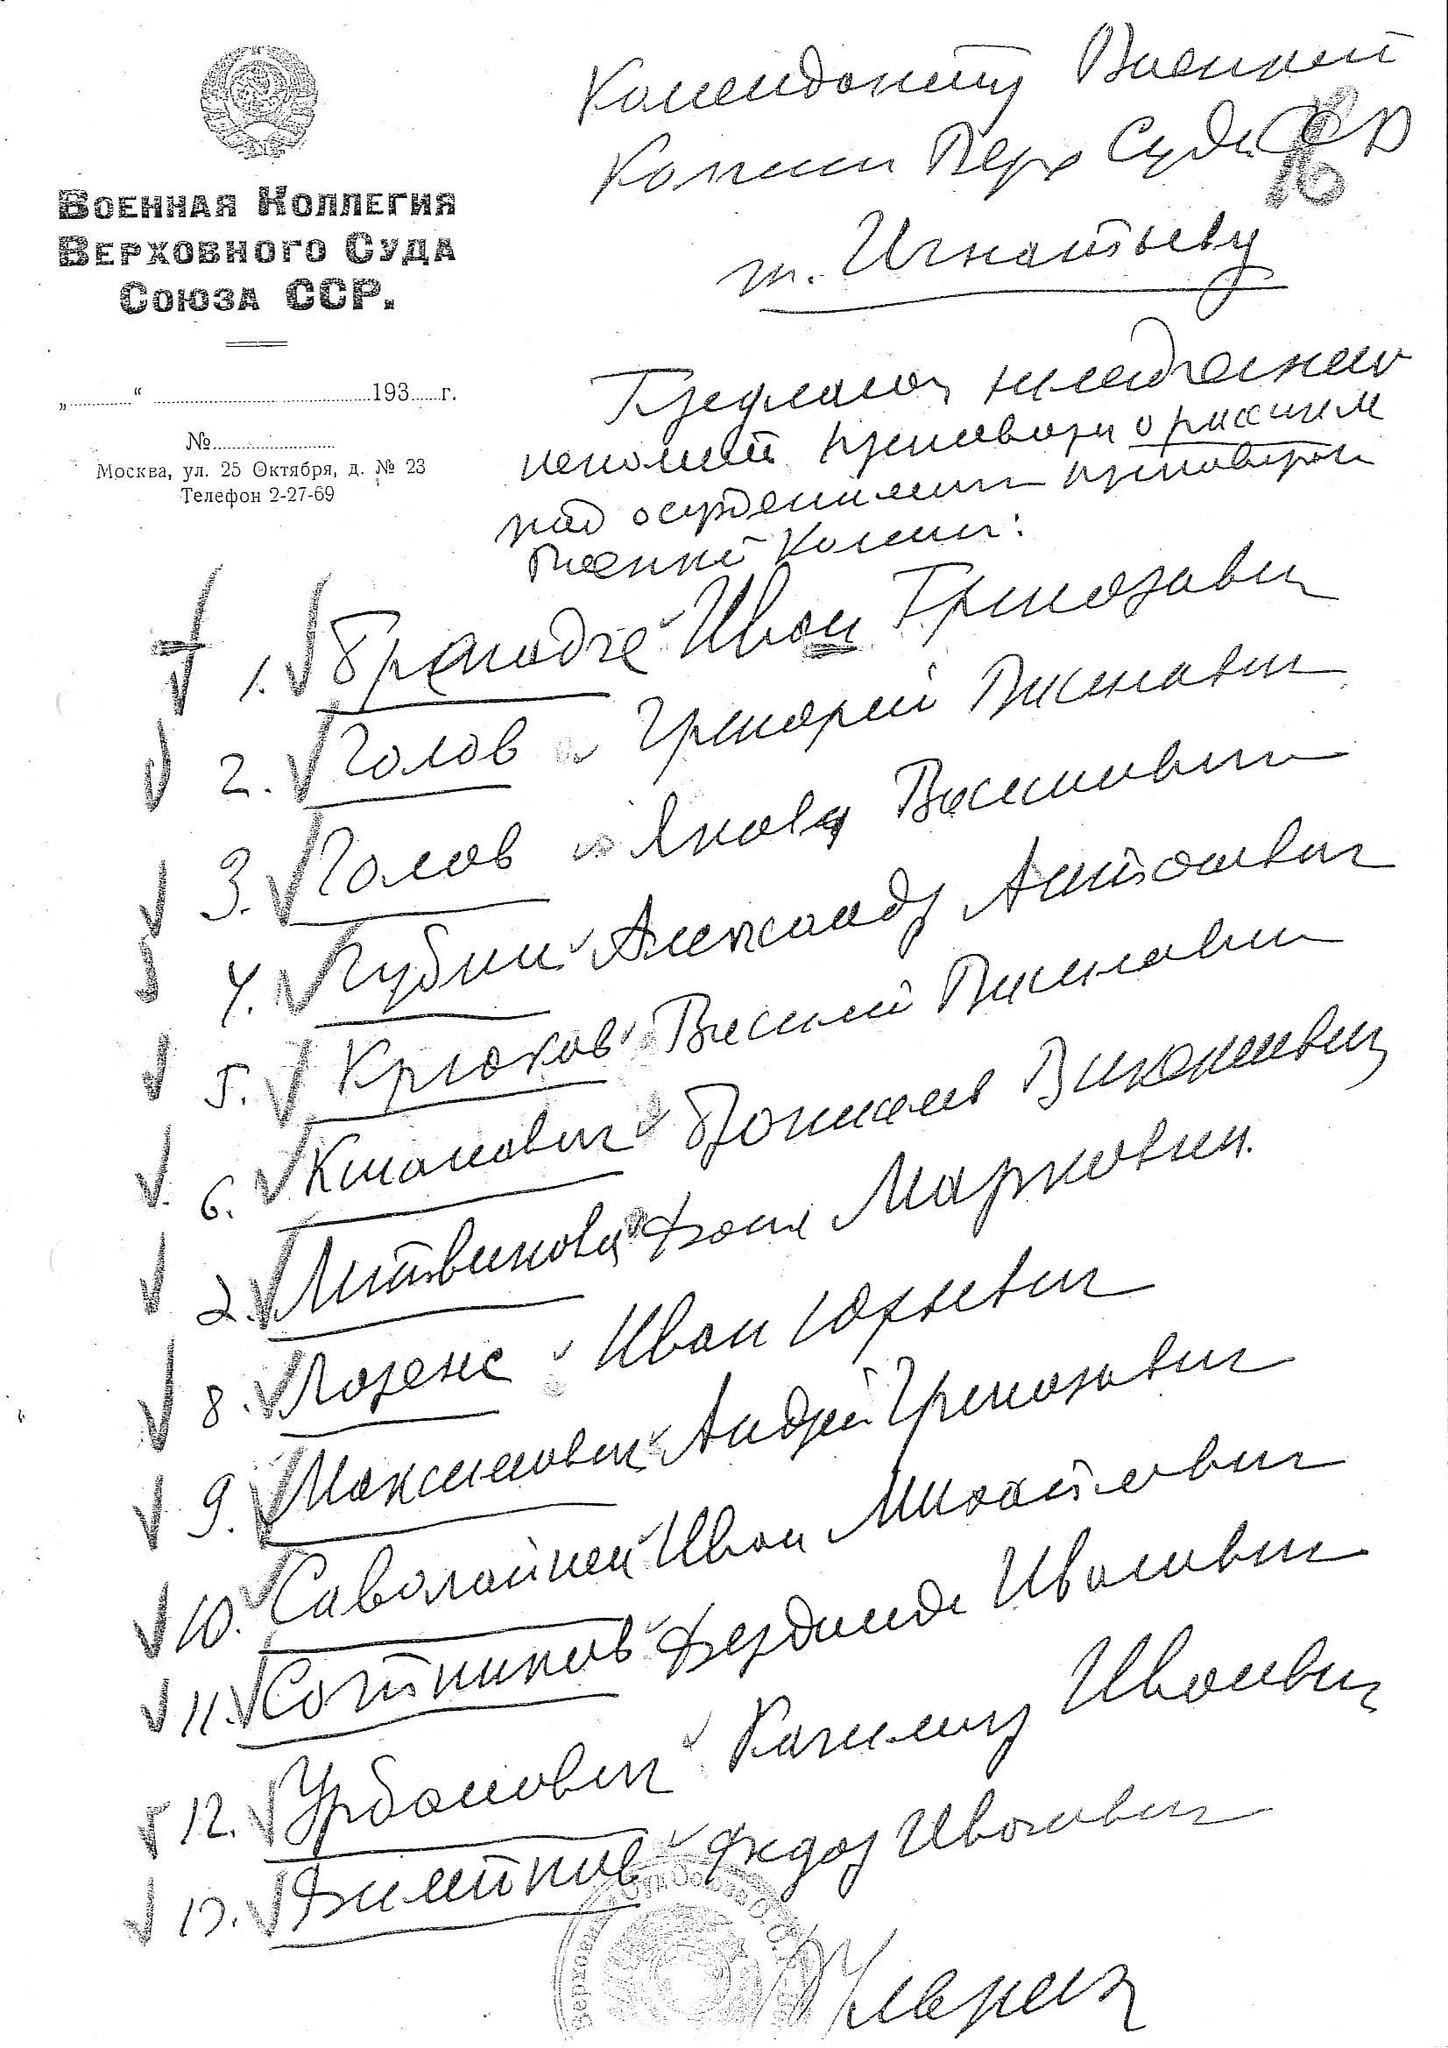 ВОЕННАЯ КОЛЛЕГИЯ
ВЕРХОВНОГО СУДА
СОЮЗА ССР.
„ “ 193 г.
№
Москва, ул. 25 Октября, д. № 23
Телефон 2-27-69
Коменданту Военной
Коллегии Верх Суда
т. Игнатьеву
Предлагаю немедленно
приговор о расстреле
над осужденными приговором
Военной Коллегии:
1. Иван Григорьевич
2. Голов Григорий Васильевич
3. Голов Яков Васильевич
4. Губин Александр Антонович
5. Крюков Василий Васильевич
6.
Литвинова Фаня Марковна.
8. Лозенс Иван Юрьевич
9. Максимович Андрей Григорьевич
10. Саволайнен Иван Михайлович
11. Сотников Фердинанд Иванович
12. Урбанович Казимир Иванович
13. Федор Иванович
Верховн